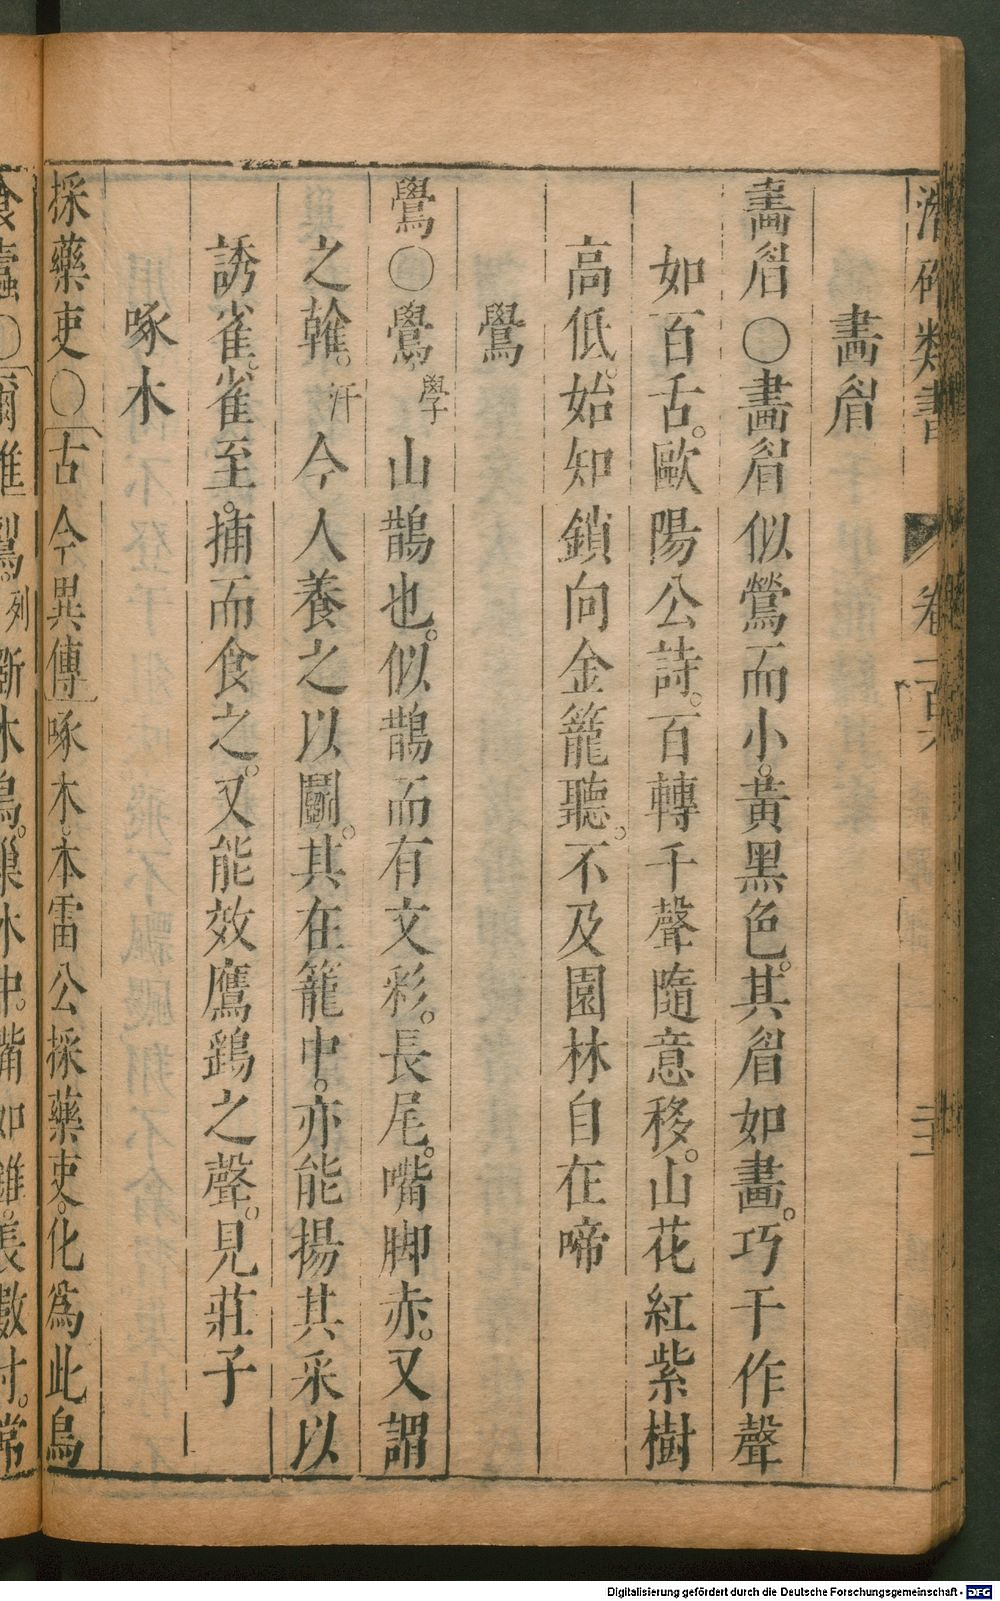 潛確類書 卷二百六 二十一
畵眉
畵眉○畵眉似鶯而小。黃黑色。其眉如畵。巧于作聲
如百舌。歐陽公詩。百轉千聲隨意移。山花紅紫樹
高低。始知鎖向金籠聽。不及園林自在啼
鷽
鷽○鷽學山鵲也。似鵲而有文彩。長尾。嘴脚赤。又謂
之鶾。汗今人養之以鬭。其在籠中。亦能揚其采以
誘雀。雀至。捕而食之。又能效鷹鷂之聲。見莊子
啄木
採藥吏○古今異傳啄木。本雷公採藥吏。化為此鳥
食蠹○爾雅鴷。列斲木鳥。巢木中。嘴如錐。長數寸。常
Digitalisierung gefördert durch die Deutsche Forschungsgemeinschaft - DFG